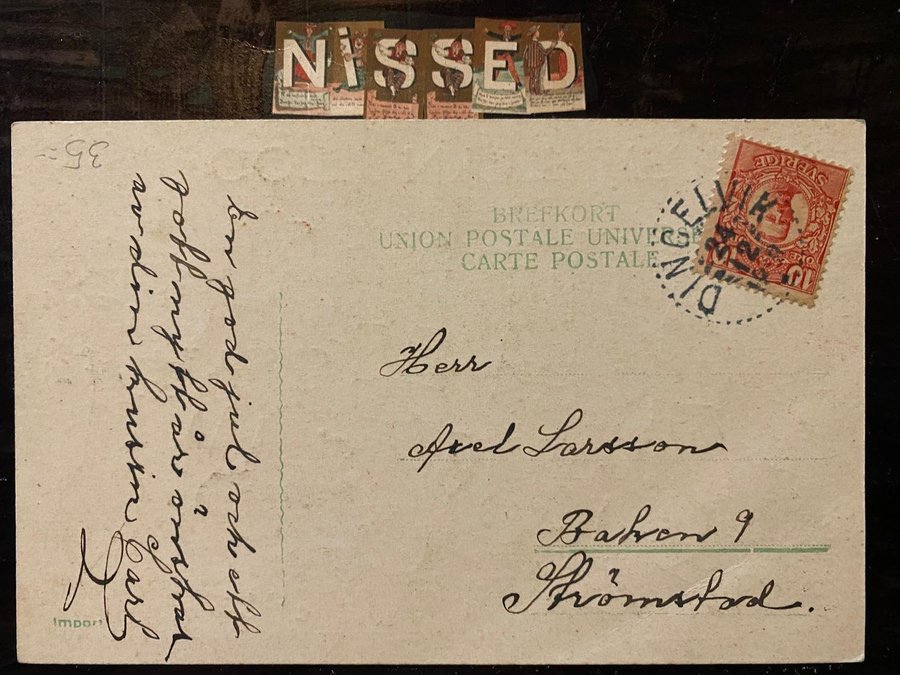 NiSSED
35:-
BREFKORT
UNION POSTALE UNIVERSE
CARTE POSTALE
SVERIGE
10
DINGELVIK
24
12
En god jul och ett
gott nytt år önskar
av din kusin Carl
Herr
Axel Larsson
Baken 9
Strömstad.
Import